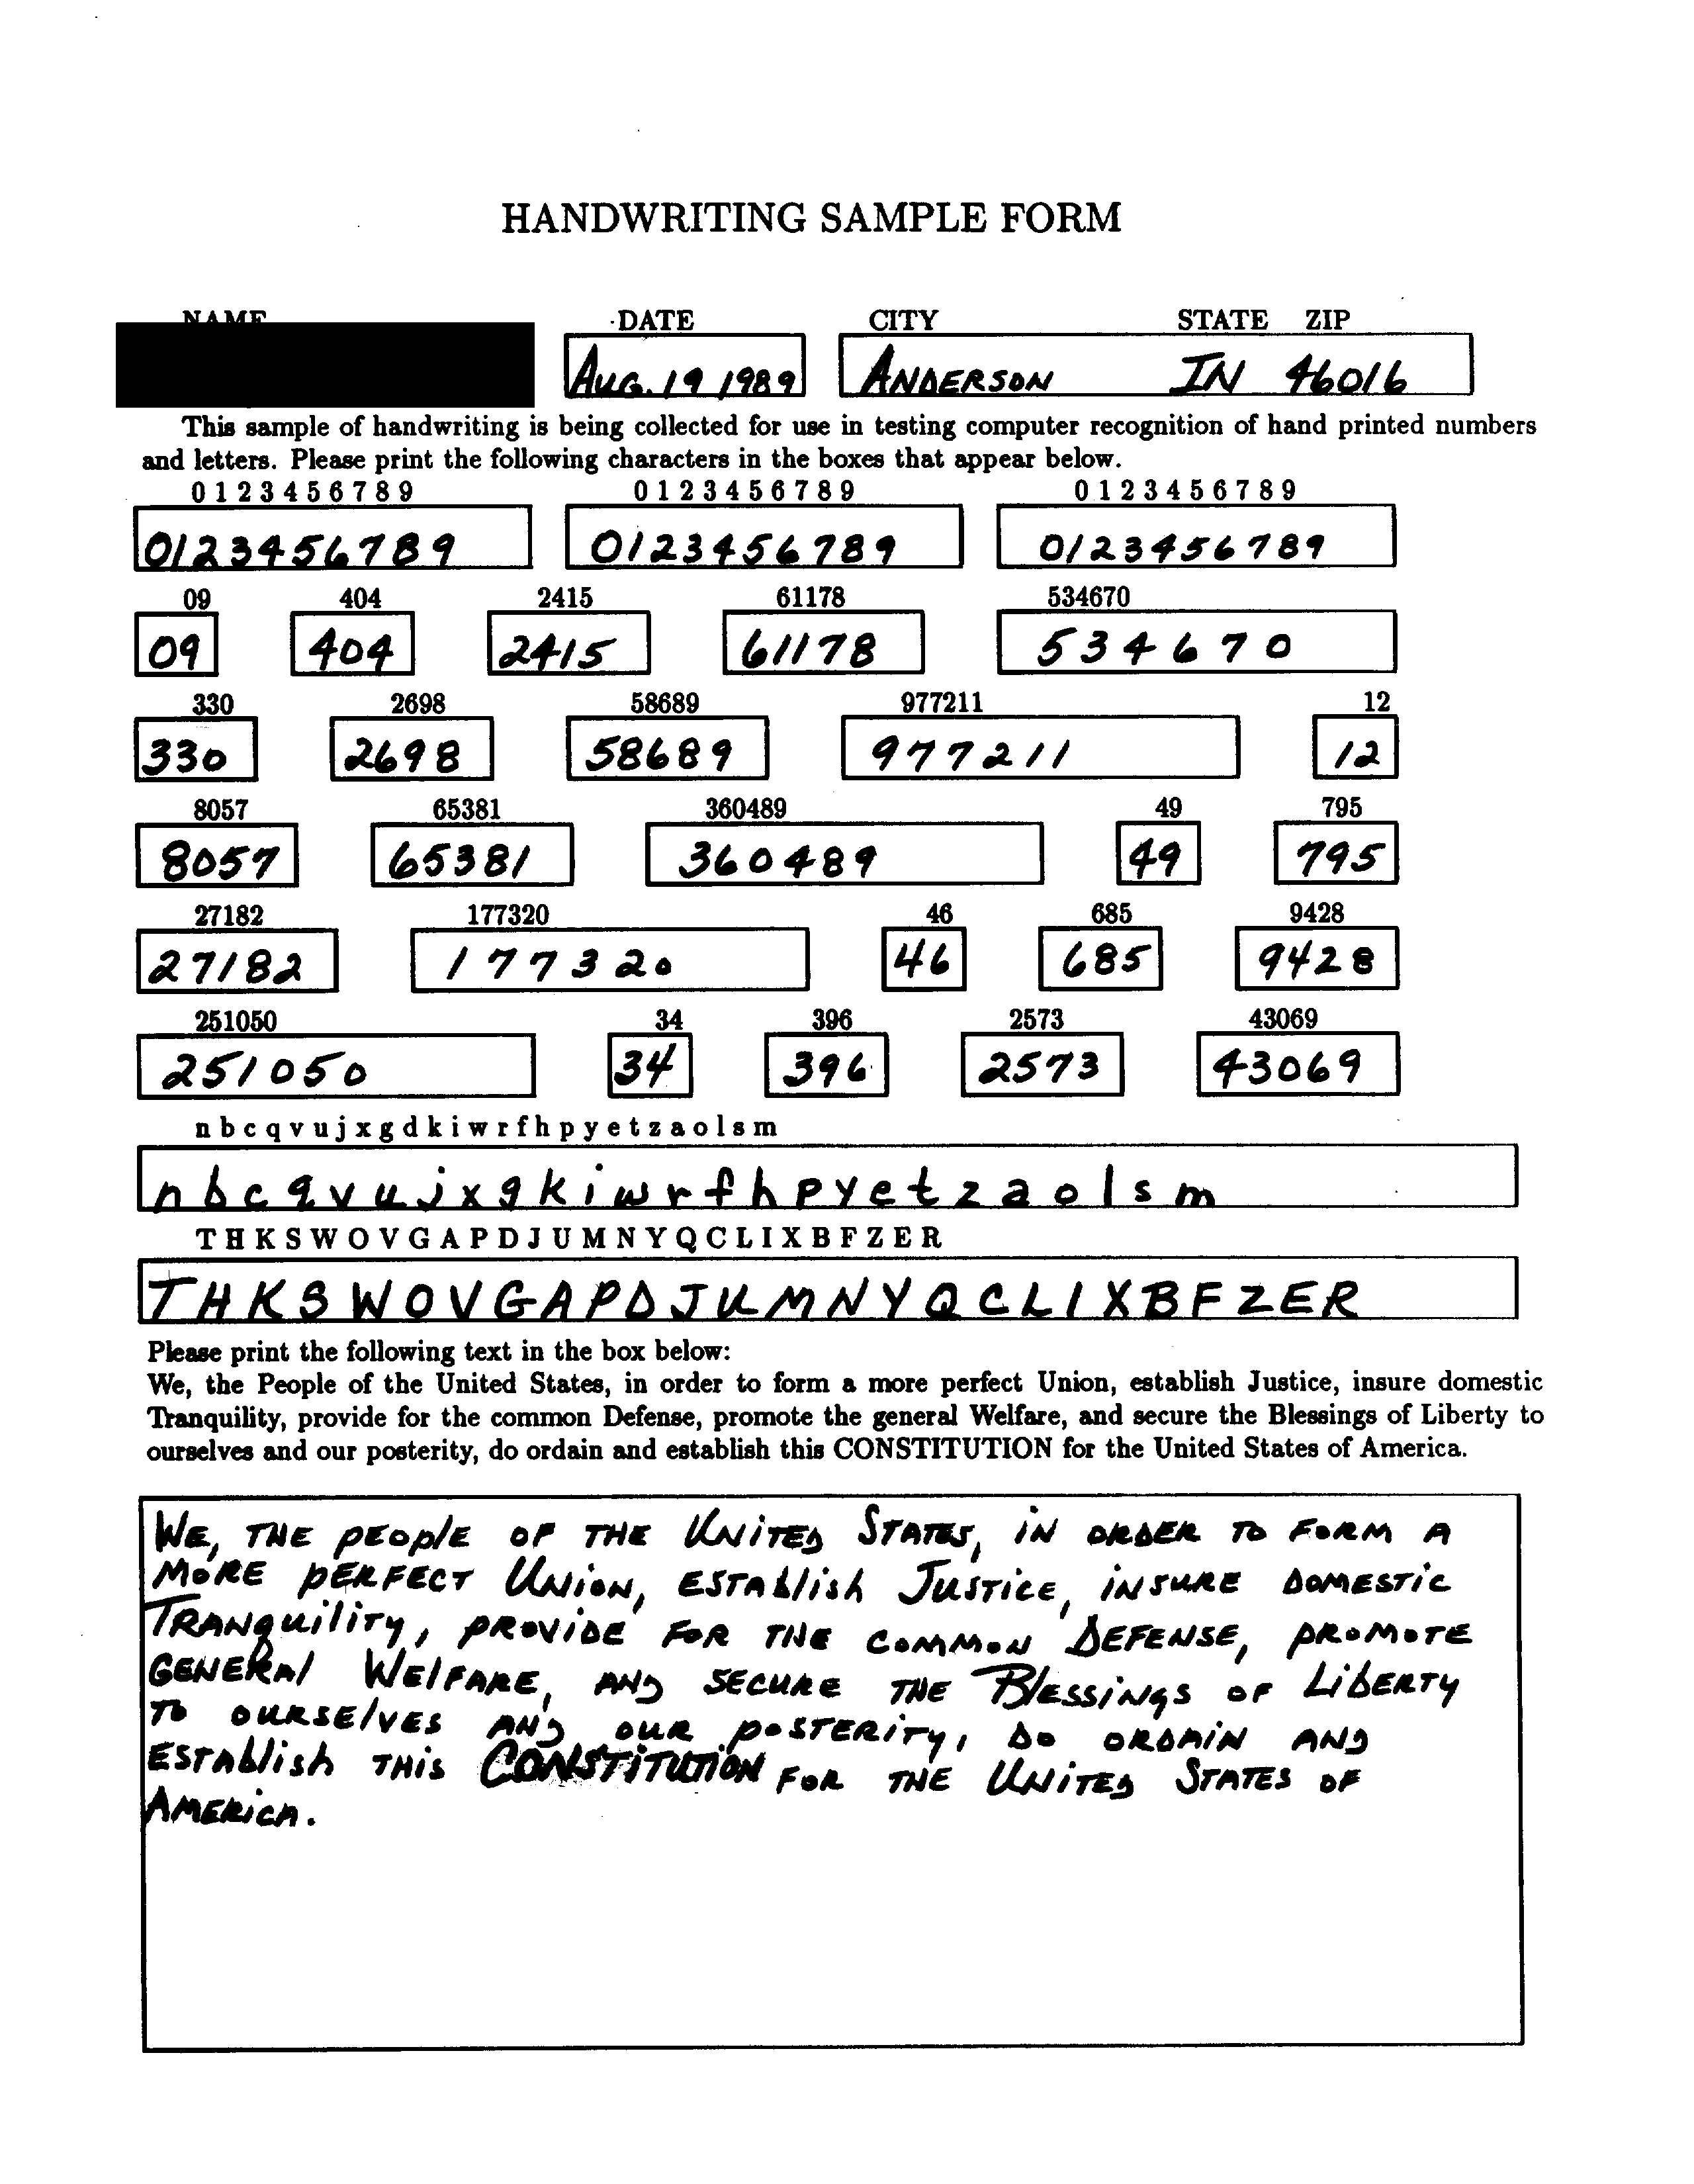 HANDWRITING SAMPLE FORM
NAME DATE CITY STATE ZIP
AUG. 19 1989 ANDERSON IN 46016
This sample of handwriting is being collected for use in testing computer recognition of hand printed numbers
and letters. Please print the following characters in the boxes that appear below.
0 1 2 3 4 5 6 7 8 9 0 1 2 3 4 5 6 7 8 9 0 1 2 3 4 5 6 7 8 9
0123456789 0123456789 0123456789
09 404 2415 61178 534670
09 404 2415 61178 534670
330 2698 58689 977211 12
330 2698 58689 977211 12
8057 65381 360489 49 795
8057 65381 360489 49 795
27182 177320 46 685 9428
27182 177320 46 685 9428
251050 34 396 2573 43069
251050 34 396 2573 43069
n b c q v u j x g d k i w r f h p y e t z a o l s m
n b c q v u j x g k i w r f h p y e t z a o l s m
T H K S W O V G A P D J U M N Y Q C L I X B F Z E R
T H K S W O V G A P D J U M N Y Q C L I X B F Z E R
Please print the following text in the box below:
We, the People of the United States, in order to form a more perfect Union, establish Justice, insure domestic
Tranquility, provide for the common Defense, promote the general Welfare, and secure the Blessings of Liberty to
ourselves and our posterity, do ordain and establish this CONSTITUTION for the United States of America.
WE, THE PEOplE OF THE UNiTED STATES, iN ORDER TO FORM A
MORE PERFECT UNiON, ESTAblish JUSTiCE, iNSURE DOMESTiC
TRANquiliTy, PROViDE FOR THE COMMON DEFENSE, PROMOTE
GENERAl WElFARE, AND SECURE THE BlESSiNgS OF LiBERTY
TO OURSElVES AND OUR POSTERiTy, DO ORDAiN AND
ESTAblish THiS CONSTiTUTiON FOR THE UNiTED STATES OF
AMERiCA.